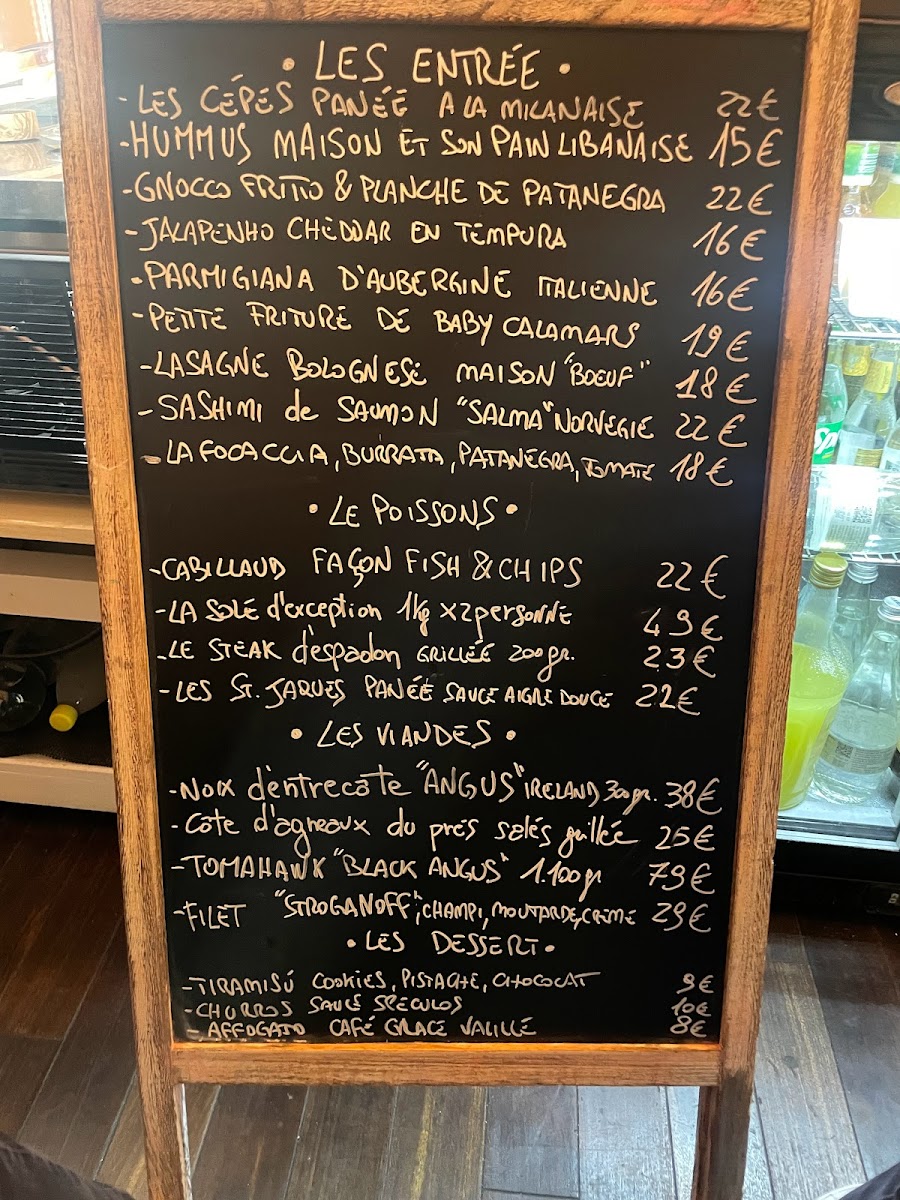 • LES ENTRÉE •
- LES CÉPES PANÉE A LA MILANAISE 22€
- HUMMUS MAISON ET SON PAIN LIBANAISE 15€
- GNOCCO FRITTO & PLANCHE DE PATANEGRA 22€
- JALAPENHO CHEDDAR EN TEMPURA 16€
- PARMIGIANA D'AUBERGINE ITALIENNE 16€
- PETITE FRITURE DE BABY CALAMARS 19€
- LASAGNE BOLOGNESE MAISON "BOEUF" 18€
- SASHIMI de SAUMON "SALMA" NORVEGIE 22€
- LA FOCACCIA, BURRATA, PATANEGRA, TOMATE 18€
• LE POISSONS •
- CABILLAUD FAÇON FISH & CHIPS 22€
- LA SOLE d'exception 1kg x2personne 49€
- LE STEAK d'espadon GRILLÉE 200gr. 23€
- LES ST. JAQUES PANÉE SAUCE AIGRE DOUCE 22€
• LES VIANDES •
- Noix d'entrecôte "ANGUS" IRELAND 300gr. 38€
- Côte d'agneaux du prés salés grillée 25€
- TOMAHAWK "BLACK ANGUS" 1.100gr 79€
- FILET "STROGANOFF", CHAMPI, MOUTARDE, CREME 29€
• LES DESSERT •
- TIRAMISÚ COOKIES, PISTACHE, CHOCOLAT 9€
- CHURROS SAUCE SPÉCULOS 10€
- AFFOGATO CAFÉ GLACE VALILLE 8€
Sp